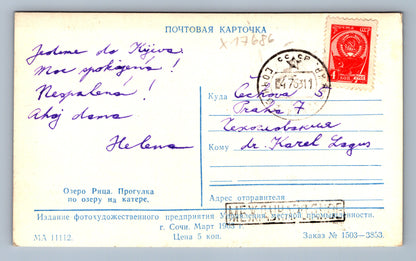 ПОЧТОВАЯ КАРТОЧКА
X-17686
Jedeme do Kijeva.
Moc spokojená!
Nespálená!
Ahoj doma
Helena
Озеро Рица. Прогулка
по озеру на катере.
СССР
4
Куда Čechova 5
Praha 7
Чехословакия
Кому dr. Karel Lagus
Адрес отправителя
МЕЖДУНАРОДНОЕ
Издание фотохудожественного предприятия Управления местной промышленности.
г. Сочи. Март 1963 г.
МА 11112.
Цена 5 коп.
Заказ № 1503—3853.